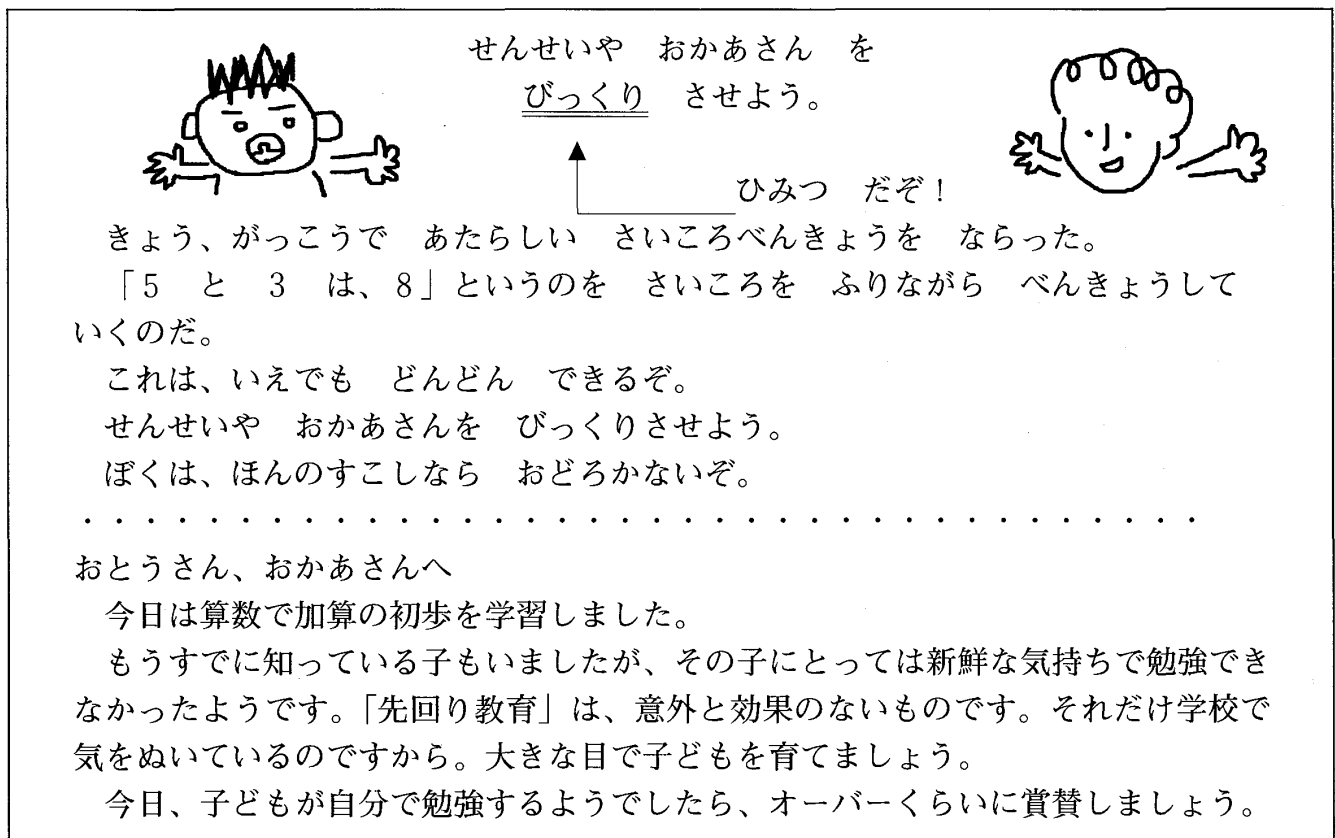 せんせいや　おかあさん　を
びっくり　させよう。
ひみつ　だぞ！
きょう、がっこうで　あたらしい　さいころべんきょうを　ならった。
「5　と　3　は、8」というのを　さいころを　ふりながら　べんきょうして
いくのだ。
これは、いえでも　どんどん　できるぞ。
せんせいや　おかあさんを　びっくりさせよう。
ぼくは、ほんのすこしなら　おどろかないぞ。
・・・・・・・・・・・・・・・・・・・・・・・・・・・・・・・・・・・・
おとうさん、おかあさんへ
今日は算数で加算の初歩を学習しました。
もうすでに知っている子もいましたが、その子にとっては新鮮な気持ちで勉強でき
なかったようです。「先回り教育」は、意外と効果のないものです。それだけ学校で
気をぬいているのですから。大きな目で子どもを育てましょう。
今日、子どもが自分で勉強するようでしたら、オーバーくらいに賞賛しましょう。